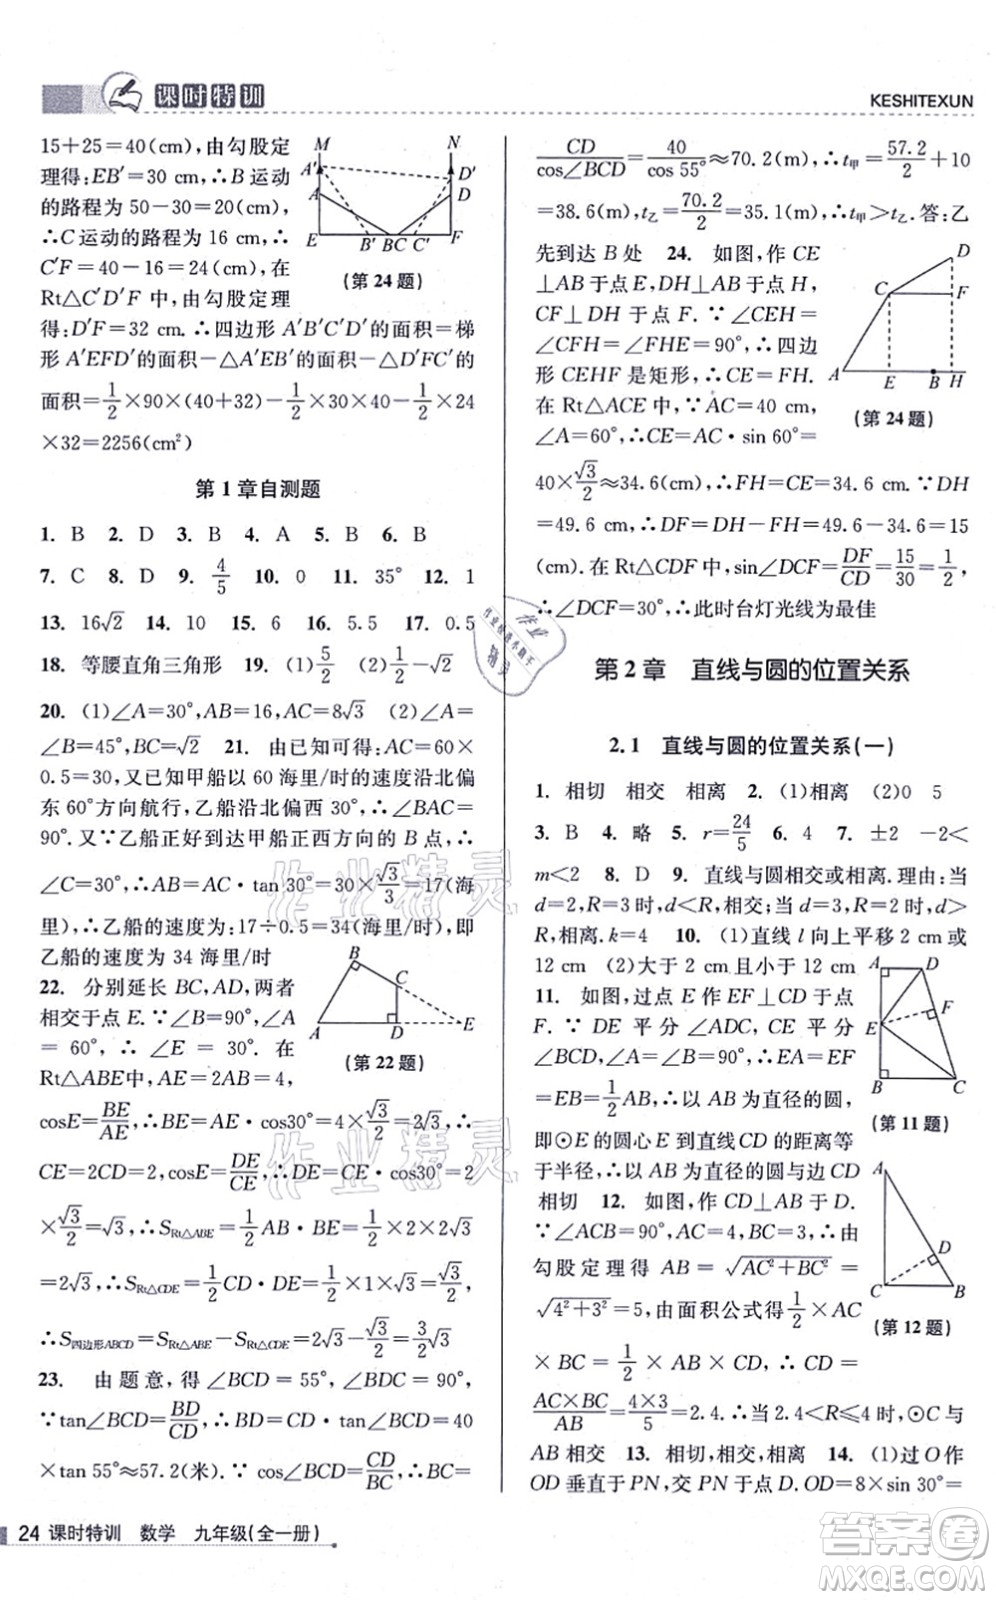 课时特训
KESHITEXUN
15+25=40(cm),由勾股定
理得:EB′=30 cm,∴B 运动
的路程为 50-30=20(cm),
∴C 运动的路程为 16 cm,∴
C′F=40-16=24(cm),在
Rt△C′D′F 中,由勾股定理
得:D′F=32 cm.∴四边形 A′B′C′D′的面积=梯
形 A′EFD′的面积-△A′EB′的面积-△D′FC′的
面积=1/2×90×(40+32)-1/2×30×40-1/2×24
×32=2256(cm²)
M N A′ D′ A D E B′ B C C′ F
(第 24 题)
第 1 章自测题
1. B 2. D 3. B 4. A 5. B 6. B
7. C 8. D 9. 4/5 10. 0 11. 35° 12. 1
13. 16√2 14. 10 15. 6 16. 5.5 17. 0.5
18. 等腰直角三角形 19. (1)5/2 (2)√3-1
20. (1)∠A=30°,AB=16,AC=8√3 (2)∠A=
∠B=45°,BC=√2 21. 由已知可得:AC=60×
0.5=30,又∵甲船以 60 海里/时的速度沿北偏
东 60°方向航行,乙船沿北偏西 30°,∴∠BAC=
90°.又∵乙船正好到达甲船正西方向的 B 点,∴
∠C=30°,∴AB=AC·tan 30°=30×√3/3=17(海
里),∴乙船的速度为:17÷0.5=34(海里/时),即
乙船的速度为 34 海里/时
22. 分别延长 BC,AD,两者
相交于点 E.∵∠B=90°,∠A
= 60°,∴∠E = 30°. 在
Rt△ABE中,AE=2AB=4,
B C A D E
(第 22 题)
cosE=BE/AE,∴BE=AE·cos30°=4×√3/2=2√3,∴
CE=2CD=2,cosE=DE/CE,∴DE=CE·cos30°=2
×√3/2=√3,∴S Rt△ABE=1/2AB·BE=1/2×2×2√3
=2√3,∴S Rt△CDE=1/2CD·DE=1/2×1×√3=√3/2,
∴S四边形ABCD=S Rt△ABE-S Rt△CDE=2√3-√3/2=3/2√3
23. 由题意,得∠BCD=55°,∠BDC=90°,
∵tan∠BCD=BD/CD,∴BD=CD·tan∠BCD=40
×tan 55°≈57.2(米).∵cos∠BCD=CD/BC,∴BC=
CD/cos∠BCD=40/cos 55°≈70.2(m),∴t甲=57.2/2+10
=38.6(m),t乙=70.2/2=35.1(m),∴t甲>t乙.答:乙
先到达 B 处 24. 如图,作 CE
⊥AB 于点 E,DH⊥AB 于点 H,
CF⊥DH 于点 F.∵∠CEH=
∠CFH=∠FHE=90°,∴四边
形 CEHF 是矩形,∴CE=FH.
在 Rt△ACE 中,∵AC=40 cm,
∠A=60°,∴CE=AC·sin 60°=
D C F A E B H
(第 24 题)
40×√3/2≈34.6(cm),∴FH=CE=34.6 cm.∵DH
=49.6 cm,∴DF=DH-FH=49.6-34.6=15
(cm).在 Rt△CDF 中,sin∠DCF=DF/CD=15/30=1/2,
∴∠DCF=30°,∴此时台灯光线为最佳
第 2 章 直线与圆的位置关系
2.1 直线与圆的位置关系(一)
1. 相切 相交 相离 2. (1)相离 (2)0 5
3. B 4. 略 5. r=24/5 6. 4 7. ±2 -2<
m<2 8. D 9. 直线与圆相交或相离.理由:当
d=2,R=3时,d<R,相交;当 d=3,R=2时,d>
R,相离.k=4 10. (1)直线 l 向上平移 2 cm或
12 cm (2)大于 2 cm且小于 12 cm
11. 如图,过点 E 作 EF⊥CD 于点
F.∵DE 平分∠ADC,CE 平分
∠BCD,∠A=∠B=90°,∴EA=EF
=EB=1/2AB.∵AB 为直径的圆,
即⊙E 的圆心 E 到直线 CD 的距离等
于半径,∴以 AB 为直径的圆与边 CD
相切 12. 如图,作 CD⊥AB 于 D.
∵∠ACB=90°,AC=4,BC=3,∴由
勾股定理得 AB=√(AC²+BC²)=
√(4²+3²)=5,由面积公式得1/2×AC
×BC=1/2×AB×CD,∴CD=
A D F E B C
(第 11 题)
A D C B
(第 12 题)
AC×BC/AB=4×3/5=2.4.∴当 2.4<R≤4时,⊙C 与
AB 相交 13. 相切,相交,相离 14. (1)过 O 作
OD 垂直于 PN,交 PN 于点 D.OD=8×sin 30°=
24 课时特训 数学 九年级(全一册)
作业精灵
作业精灵
MXQE.COM